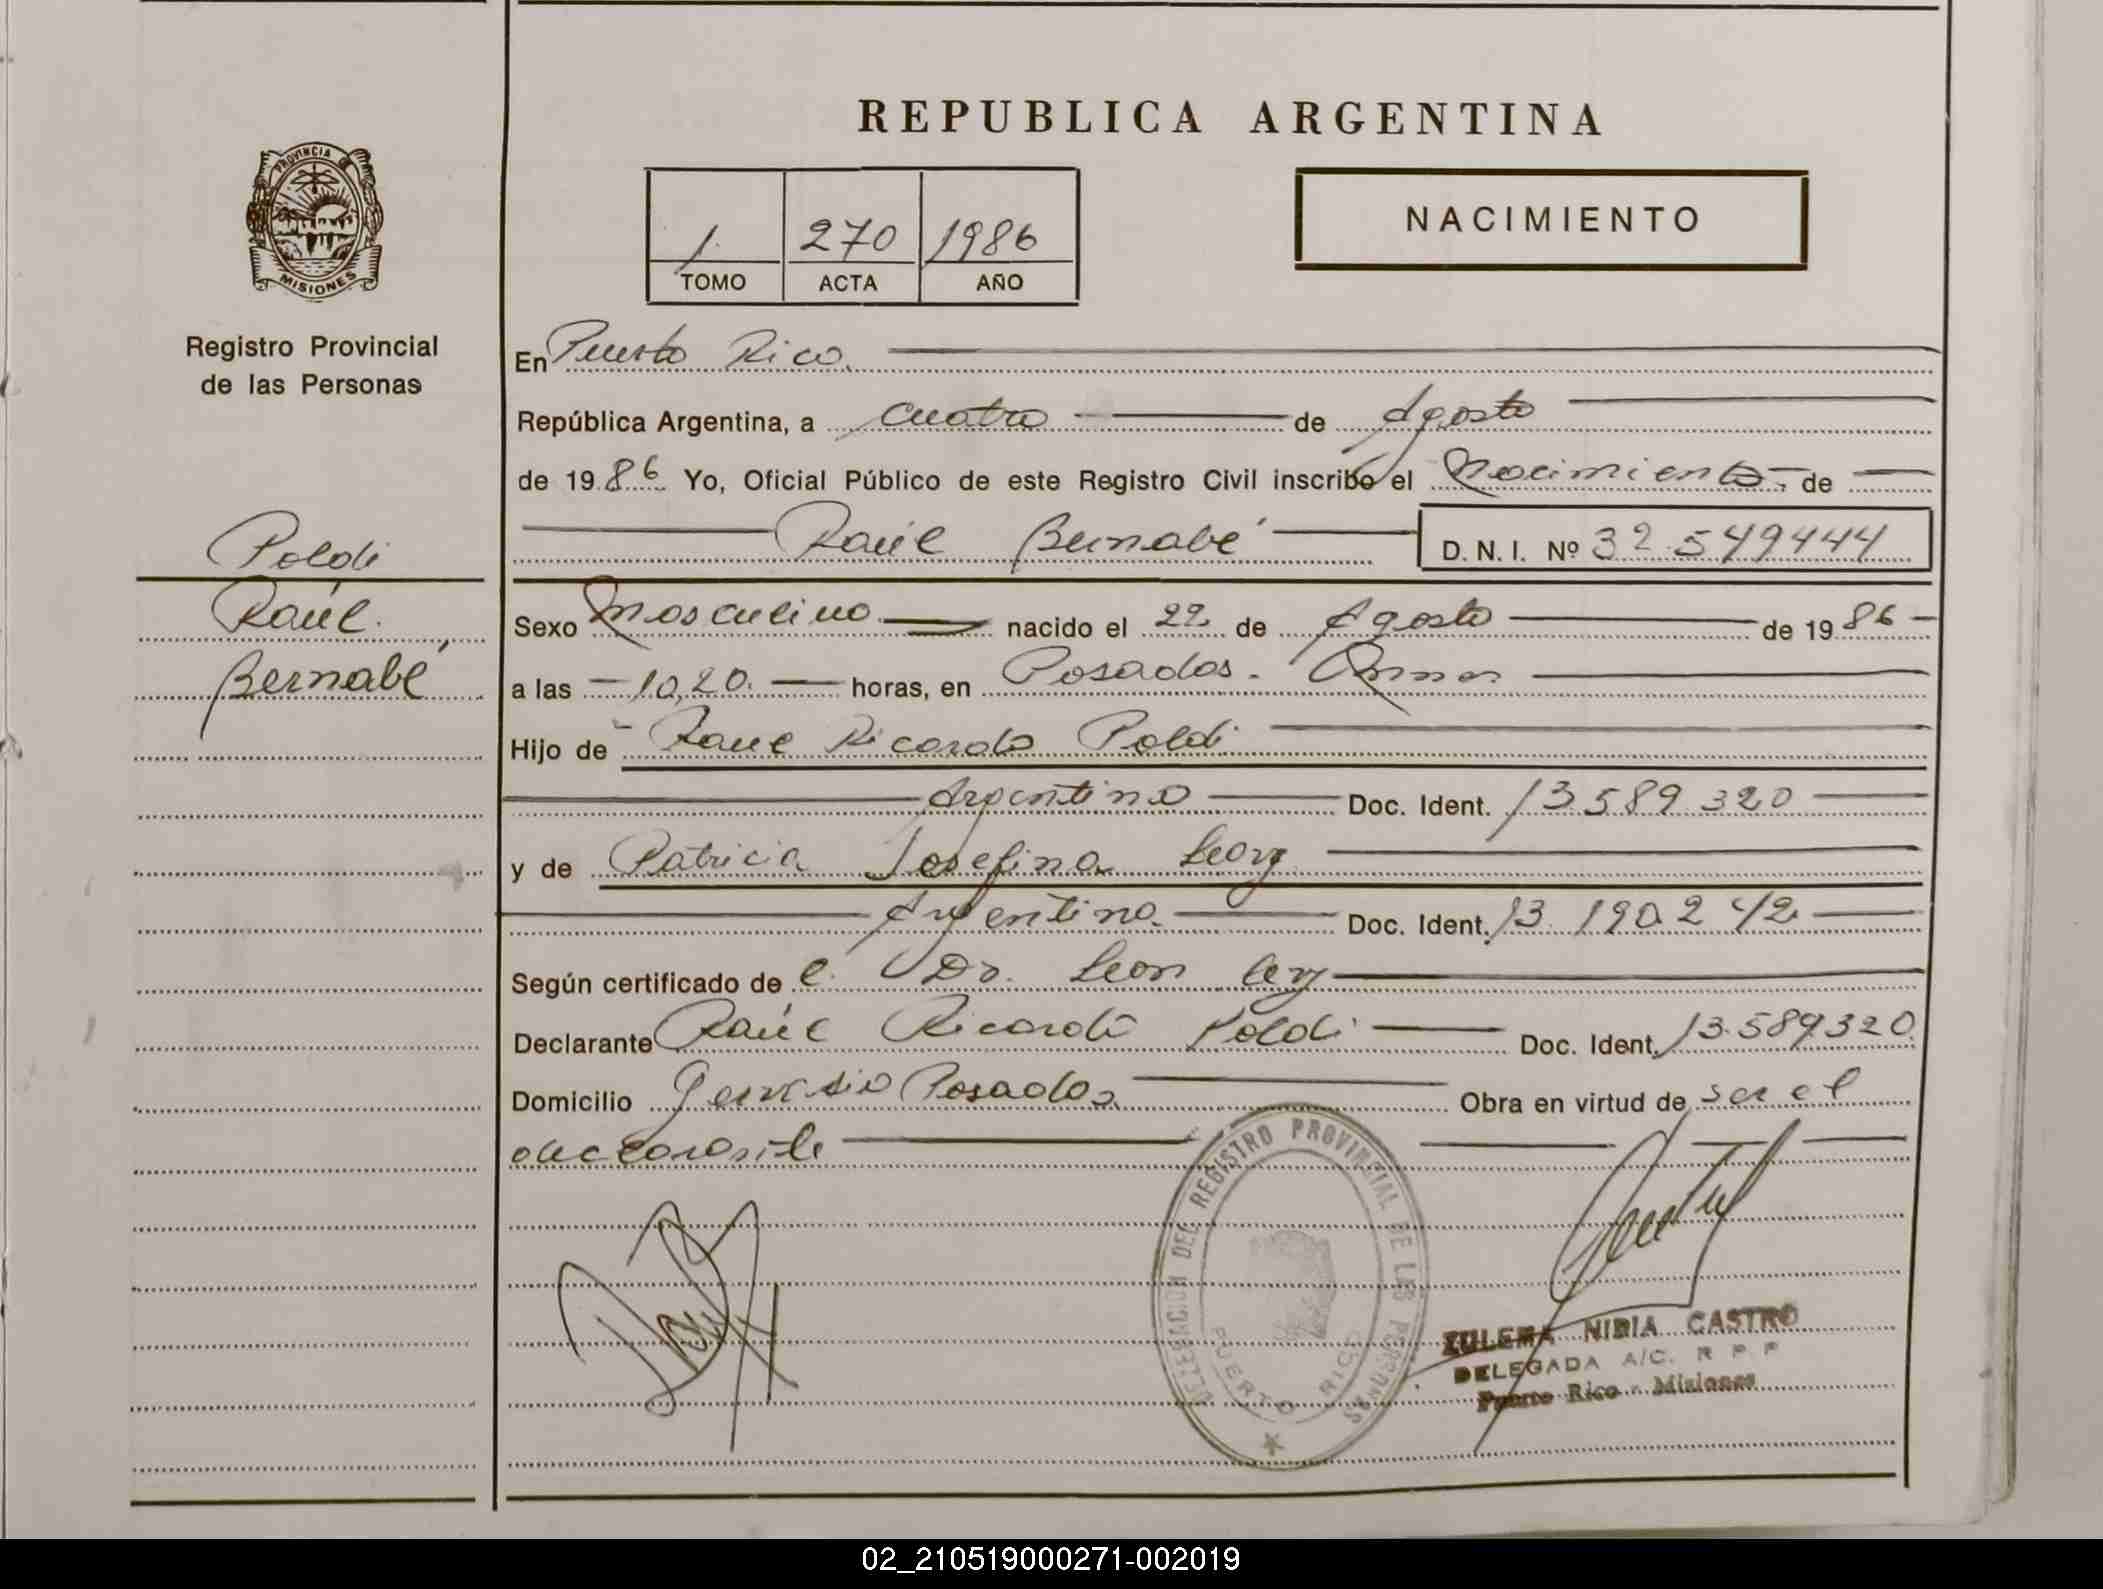 REPUBLICA ARGENTINA
PROVINCIA DE
MISIONES
Registro Provincial
de las Personas
Poldi
Raúl
Bernabé
1 270 1986
TOMO ACTA AÑO
NACIMIENTO
En Puerto Rico
República Argentina, a cuatro de Agosto
de 1986 Yo, Oficial Público de este Registro Civil inscribo el Nacimiento de
Raúl Bernabé D. N. I. Nº 32.549444
Sexo Masculino nacido el 22 de Agosto de 1986
a las 10,20 horas, en Posadas.
Hijo de Raúl Ricardo Poldi
Argentino Doc. Ident. 13.589.320
y de Patricia Josefina
Argentina Doc. Ident. 13.190.242
Según certificado de Dr. Leon
Declarante Raúl Ricardo Poldi Doc. Ident. 13.589320
Domicilio Posadas Obra en virtud de ser el
DELEGACION DEL REGISTRO PROVINCIAL DE LAS PERSONAS
PUERTO RICO
ZULEMA NIDIA CASTRO
DELEGADA A/C. R P P
Puerto Rico - Misiones
02_210519000271-002019